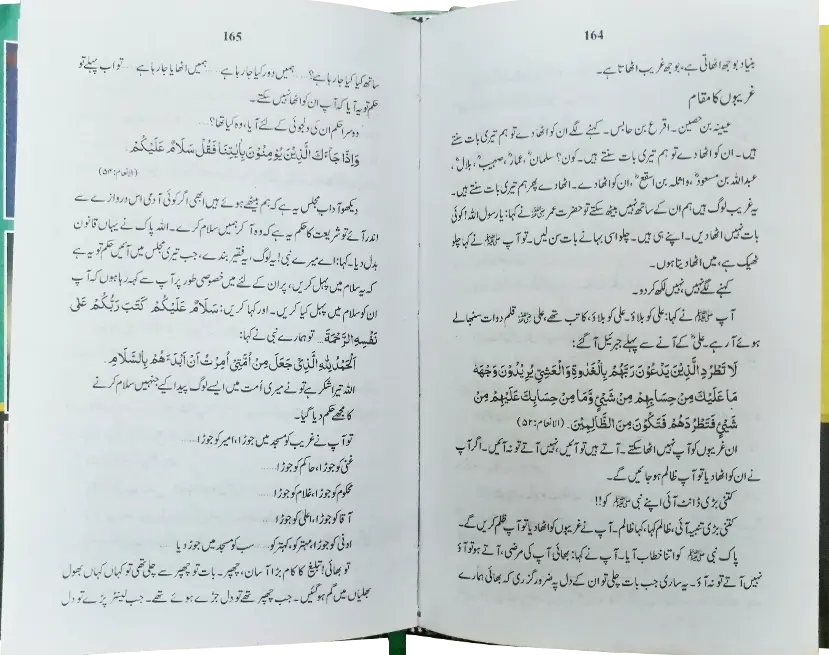 164
بنیاد بوجھ اٹھاتی ہے، بوجھ غریب اٹھاتا ہے۔
غریبوں کا مقام
عیینہ بن حصین۔ اقرع بن حابس۔ کہنے لگے ان کو اٹھا دے تو ہم تیری بات سنتے
ہیں۔ ان کو اٹھا دے تو ہم تیری بات سنتے ہیں۔ کون؟ سلمانؓ، عمارؓ، صہیبؓ، بلالؓ،
عبداللہ بن مسعودؓ، واثلہ بن اسقعؓ، ان کو اٹھا دے۔ اٹھا دے پھر ہم تیری بات سنتے ہیں۔
یہ غریب لوگ ہیں ہم ان کے ساتھ نہیں بیٹھ سکتے تو حضرت عمرؓ نے کہا: یا رسول اللہ! کوئی
بات نہیں اٹھا دیں۔ اپنے ہی ہیں۔ چلو اسی بہانے بات سن لیں۔ تو آپ ﷺ نے کہا چلو
ٹھیک ہے، میں اٹھا دیتا ہوں۔
کہنے لگے نہیں، نہیں لکھ کر دو۔
آپ ﷺ نے کہا: علی کو بلاؤ۔ علی کو بلاؤ، کاتب تھے، علی قلم دوات سنبھالے
ہوئے آ رہے۔ علیؓ کے آنے سے پہلے جبرئیل آ گئے:
لَا تَطْرُدِ الَّذِيْنَ يَدْعُوْنَ رَبَّهُمْ بِالْغَدٰوةِ وَالْعَشِيِّ يُرِيْدُوْنَ وَجْهَهٗ
مَا عَلَيْكَ مِنْ حِسَابِهِمْ مِنْ شَيْءٍ وَّمَا مِنْ حِسَابِكَ عَلَيْهِمْ مِنْ
شَيْءٍ فَتَطْرُدَهُمْ فَتَكُوْنَ مِنَ الظَّالِمِيْنَ۔ (الانعام:۵۲)
ان غریبوں کو آپ نہیں اٹھا سکتے۔ آتے ہیں تو آئیں، نہیں آتے تو نہ آئیں۔ اگر آپ
نے ان کو اٹھا دیا تو آپ ظالم ہو جائیں گے۔
کتنی بڑی ڈانٹ آئی اپنے نبی ﷺ کو!!
کتنی بڑی تنبیہ آئی، ظالم کہا، کہا ظالم۔ آپ نے غریبوں کو اٹھا دیا تو آپ ظلم کریں گے۔
پاک نبی ﷺ کو اتنا خطاب آیا۔ آپ نے کہا: بھائی آپ کی مرضی، آتے ہو تو آؤ
نہیں آتے تو نہ آؤ۔ یہ ساری جب بات چلی تو ان کے دل پہ ضرور گزری کہ بھائی ہمارے
165
ساتھ کیا کیا جا رہا ہے؟ ..... ہمیں دور کیا جا رہا ہے ..... ہمیں اٹھایا جا رہا ہے ..... تو اب پہلے تو
حکم تو یہ آیا کہ آپ ان کو اٹھا نہیں سکتے۔
دوسرا حکم ان کی دلجوئی کے لئے آیا، وہ کیا تھا؟
وَاِذَا جَآءَكَ الَّذِيْنَ يُوْمِنُوْنَ بِاٰيٰتِنَا فَقُلْ سَلَامٌ عَلَيْكُمْ۔
(الانعام:۵۴)
دیکھو آداب مجلس یہ ہے کہ ہم بیٹھے ہوئے ہیں ابھی اگر کوئی آدمی اس دروازے سے
اندر آئے تو شریعت کا حکم یہ ہے کہ وہ آ کر ہمیں سلام کرے۔ اللہ پاک نے یہاں قانون
بدل دیا۔ کہا: اے میرے نبی! یہ لوگ، یہ فقیر بندے، جب تیری مجلس میں آئیں حکم تو یہ ہے
کہ یہ سلام میں پہل کریں، پر ان کے لئے میں خصوصی طور پر آپ سے کہہ رہا ہوں کہ آپ
ان کو سلام میں پہل کیا کریں۔ اور کہا کریں: سَلَامٌ عَلَيْكُمْ كَتَبَ رَبُّكُمْ عَلٰى
نَفْسِهِ الرَّحْمَةَ... تو ہمارے نبی نے کہا:
اَلْحَمْدُ لِلّٰهِ الَّذِيْ جَعَلَ مِنْ اُمَّتِيْ اُمِرْتُ اَنْ اَبْدَءَهُمْ بِالسَّلَامِ۔
اللہ تیرا شکر ہے تو نے میری اُمت میں ایسے لوگ پیدا کیے جنہیں سلام کرنے
کا مجھے حکم دیا گیا۔
تو آپ نے غریب کو مسجد میں جوڑا، امیر کو جوڑا.....
غنی کو جوڑا، حاکم کو جوڑا.....
محکوم کو جوڑا، غلام کو جوڑا.....
آقا کو جوڑا، اعلیٰ کو جوڑا.....
ادنیٰ کو جوڑا، مہتر کو، کہتر کو..... سب کو مسجد میں جوڑ دیا.....
تو بھائی! تبلیغ کا کام بڑا آسان، چھپر۔ بات تو چھپر سے چلی تھی تو کہاں کہاں بھول
بھلیاں میں گم ہو گئیں۔ جب چھپر تھے تو دل جڑے ہوئے تھے۔ جب لینٹر پڑے تو دل